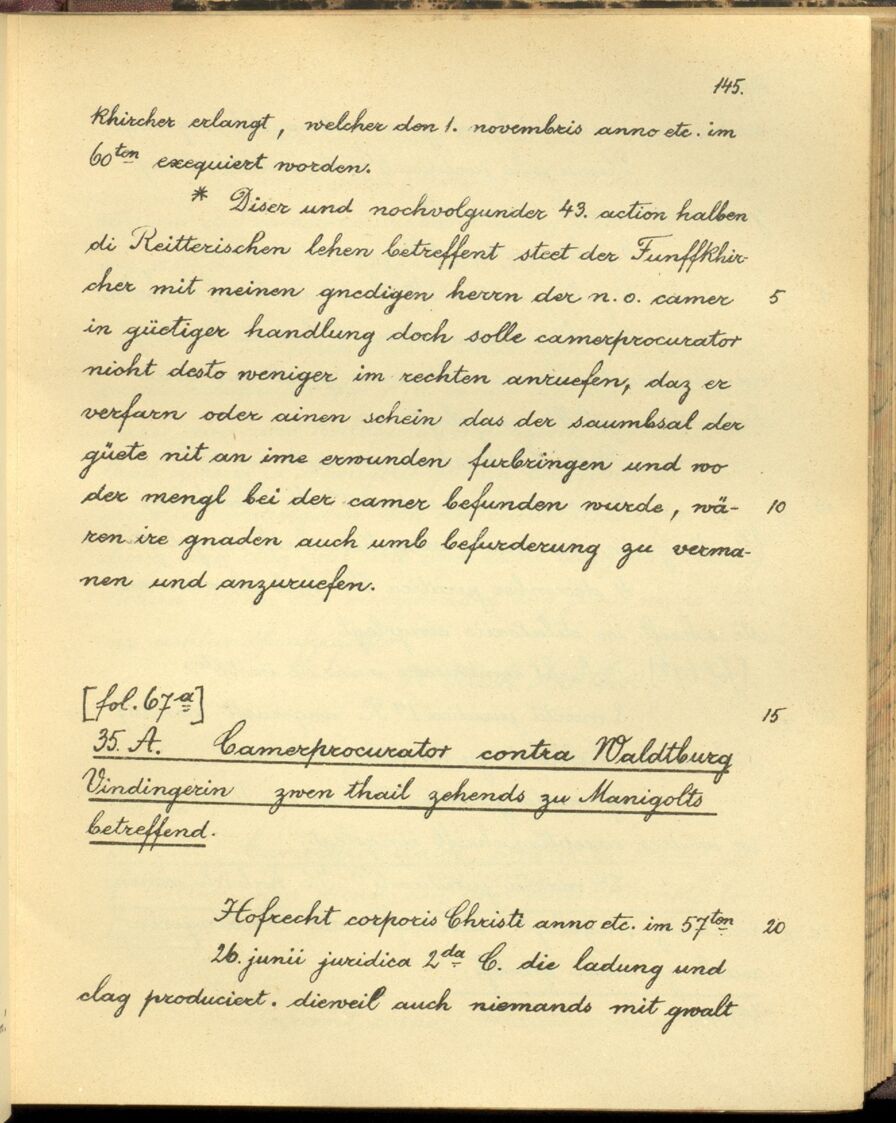 145.
Khircher erlangt, welcher den 1. novembris anno etc. im
60ten exequiert worden.
* Diser und nochvolgunder 43. action halben
di Reitterischen lehen betreffent steet der Funffkhir-
cher mit meinen gnedigen herrn der n. o. camer 5
in güetiger handlung doch solle camerprocurator
nicht desto weniger im rechten anruefen, daz er
verfarn oder ainen schein das der saumbsal der
güete nit an ime erwunden furbringen und wo
der mengl bei der camer befunden wurde, wä- 10
ren ire gnaden auch umb befurderung zu verma-
nen und anzuruefen.
[fol. 67a] 15
35. A. Camerprocurator contra Waldtburg
Vindingerin zwen thail zehends zu Manigolts
betreffend.
Hofrecht corporis Christi anno etc. im 57ten 20
26. junii juridica 2da C. die ladung und
clag produciert. dieweil auch niemands mit gwalt